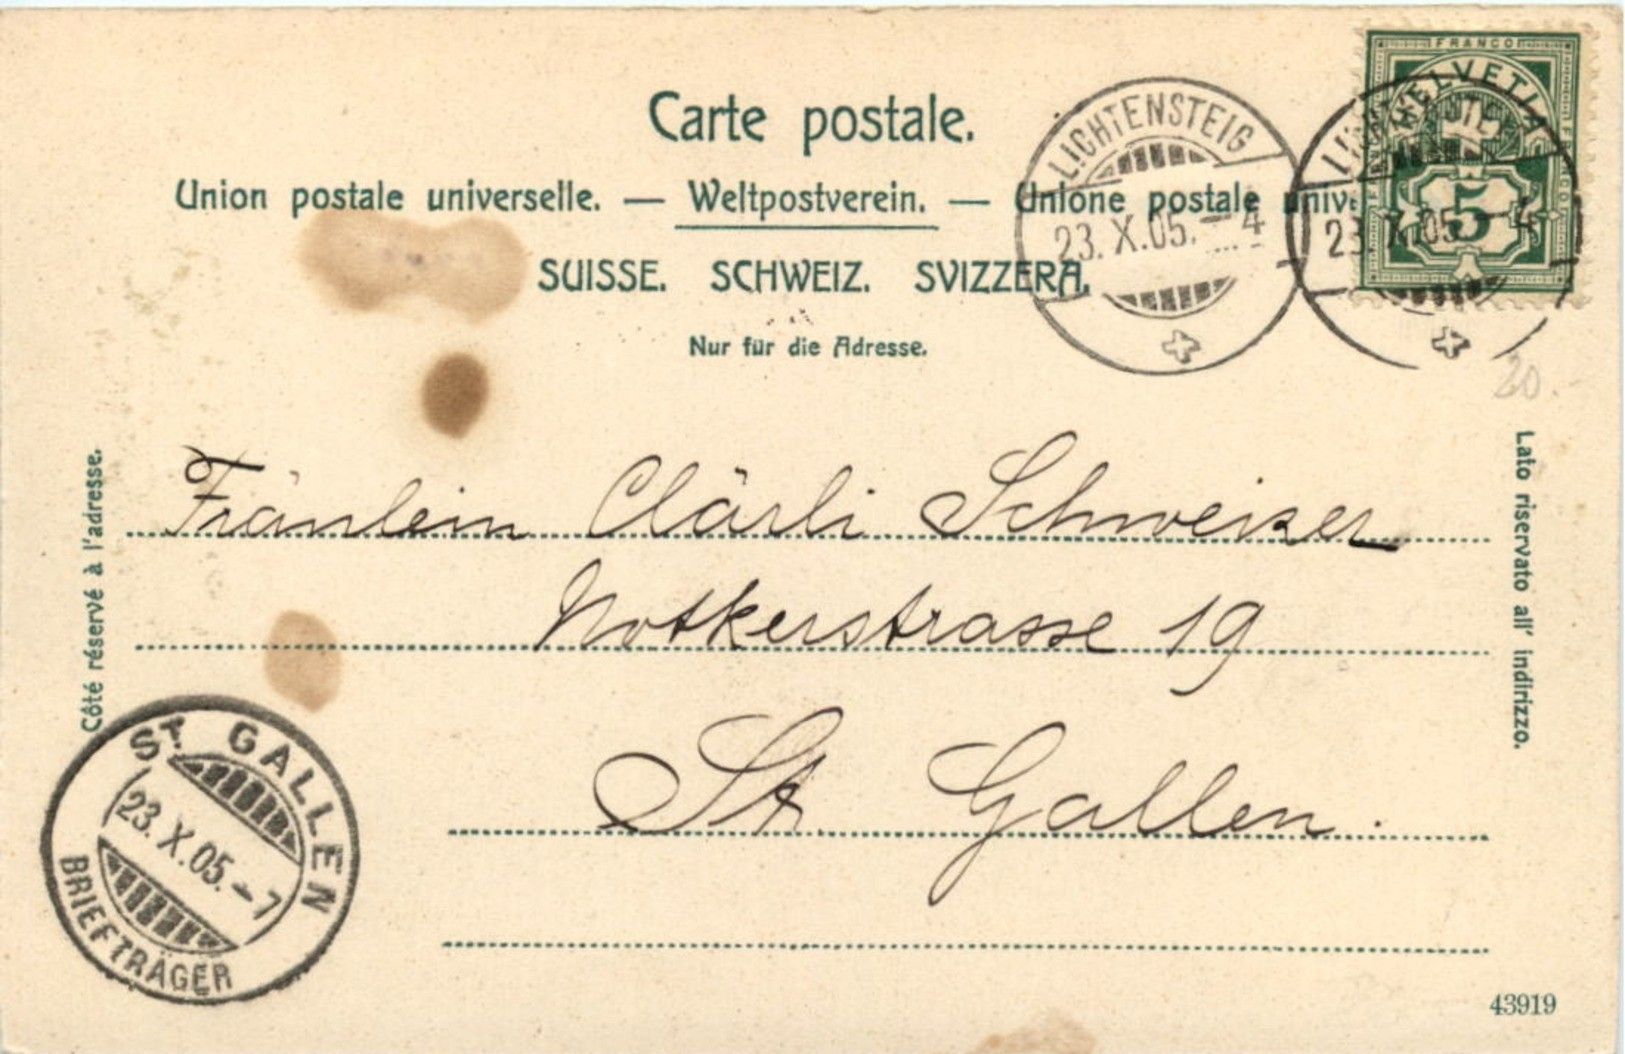 FRANCO
HELVETIA
5
Carte postale.
Union postale universelle. — Weltpostverein. — Unione postale
SUISSE. SCHWEIZ. SVIZZERA.
Nur für die Adresse.
LICHTENSTEIG
23. X. 05. - 4
23. X. 05. - 4
20.
Côté réservé à l'adresse.
Lato riservato all' indirizzo.
Fräulein Clärli Schweizer
Notkerstrasse 19
St. Gallen.
ST. GALLEN
23. X. 05. - 7
BRIEFTRÄGER
43919